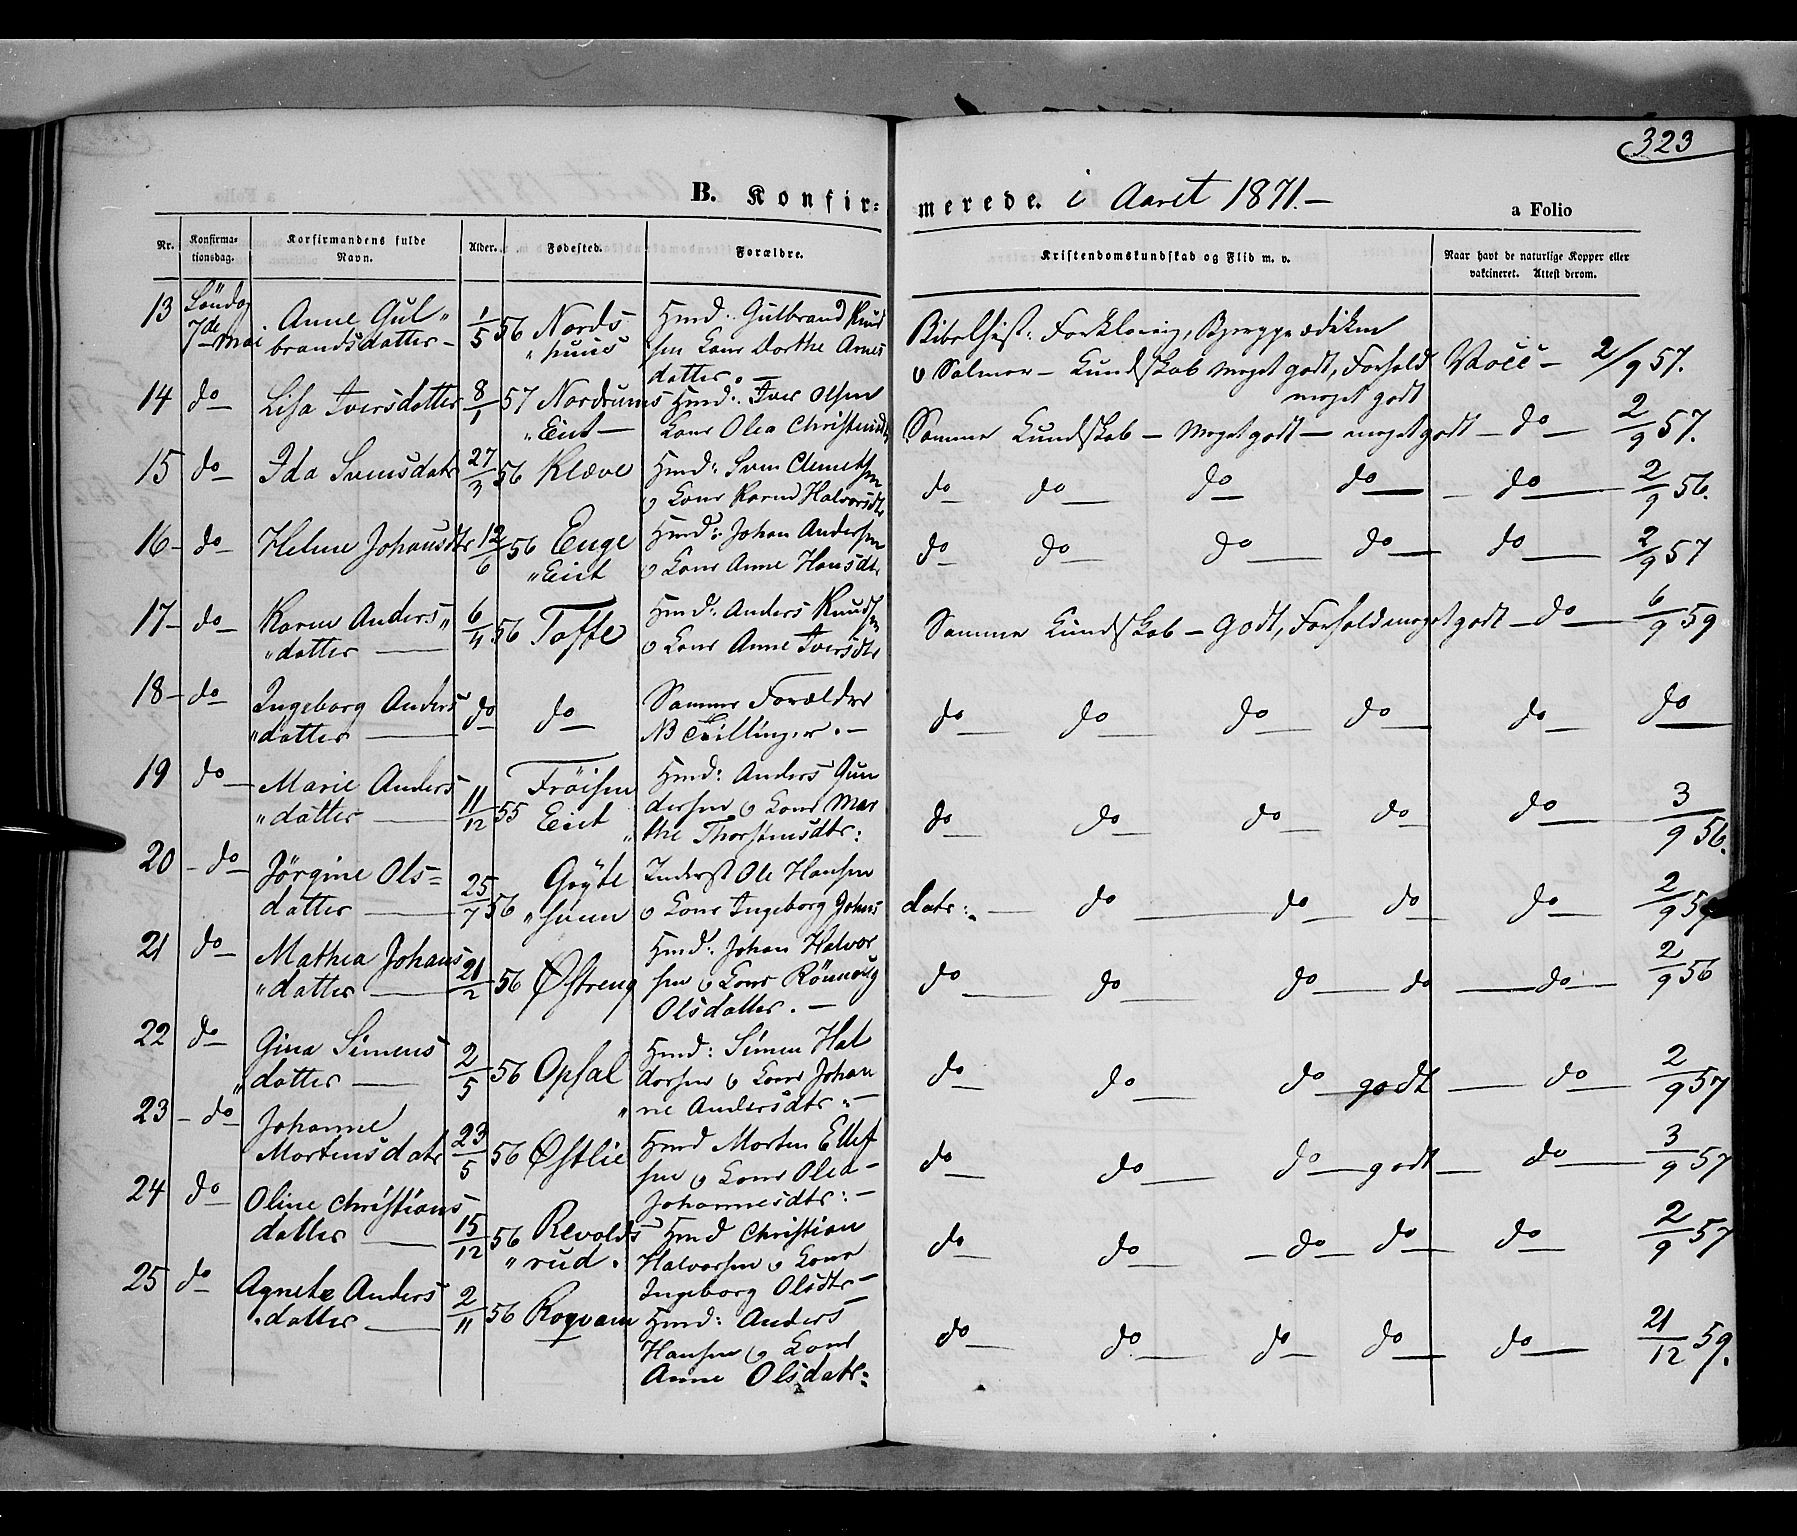 323
B. Konfir= merede. i Aaret 1871.—
a Folio
Nr.
Konfirma-
tionsdag.
Korfirmandens fulde
Navn.
Alder.
Fødested.
Forældre.
Kristendomskundskab og Flid m. v.
Naar havt de naturlige Kopper eller
vakcineret. Attest derom.
13 Söndag
7de Mai
Anne Gul„
brandsdatter — 1/5 56 Nords
„huus
Hmd: Gulbrand Knud
sen Kone Dorthe Arnes
datter. —
Bibelhist: Forklaring, Bjergprædiken
o Salmer — Kundskab meget godt, Forhold
meget godt
Vacc — 2/9 57.
14 do — Lisa Iversdatter 8/1 57 Nordrums
„Eiet —
Hmd: Iver Olsen
Kone Olea
Samme Kundskab — Meget godt — meget godt — do — 2/9 57.
15 do — Ida Svensdatr 27/3 56 Klæve
Hmd: Sven Clemetsen
o Kone Karen Halvorsdtr
do — do — do — do — do — 2/9 56.
16 — do — Helene Johansdtr 12/6 56 Enge
„Eiet
Hmd: Johan Andersen
o Kone Anne Hansdtr
do — do — do — do — do — 2/9 57
17 — do — Karen Anders„
„datter — 6/4 56 Toffte
Hmd: Anders Knudsen
o Kone Anne Iversdtr
Samme Kundskab — Godt, Forhold meget godt — do — 6/9 59
18 — do — Ingeborg Anders
„datter — do do —
Samme Forældre
NB Tvillinger. —
do — do — do — do — do — do —
19 do — Marie Anders
„datter — 11/12 55 Fröisen
Eiet „
Hmd: Anders Gun
dersen o Kone Mar
the Thorstensdtr:
do — do — do — do — do — 3/9 56.
20 — do — Jørgine Ols=
datter — 25/7 56
„sveen
Inderst Ole Hansen
o Kone Ingeborg Johns
datr: — do — do — do — do — 2/9
21 do — Mathea Johans
„datter — 21/2 56 Østreng
Hmd: Johan Halvor
sen o Kone Rönnaug
Olsdatter. —
do — do — do — do — do — 2/9 56
22 do — Gina Simens
„datter — 2/5 56 Opsal
Hmd: Simen Hal
dorsen o Kone Johan
„ne Andersdtr. —
do — do — do — godt — do — 2/9 57
23 — do — Johanne
Mortensdatr 23/5 56 Østlie
Hmd Morten Ellef
sen o Kone Olea —
Johannesdtr: —
do — do — do — godt — do — 3/9 57
24 do — Oline Christians
datter — 15/12 56 Revolds
„rud.
Hmd Christian
Halvorsen o Kone
Ingeborg Olsdtr —
do — do — do — do — do — 2/9 57
25 do — Agnete Anders
„datter — 2/11 56 Roqvam
Hmd: Anders
Hansen o Kone
Anne Olsdatr:
do — do — do — do — do — 21/12 59.